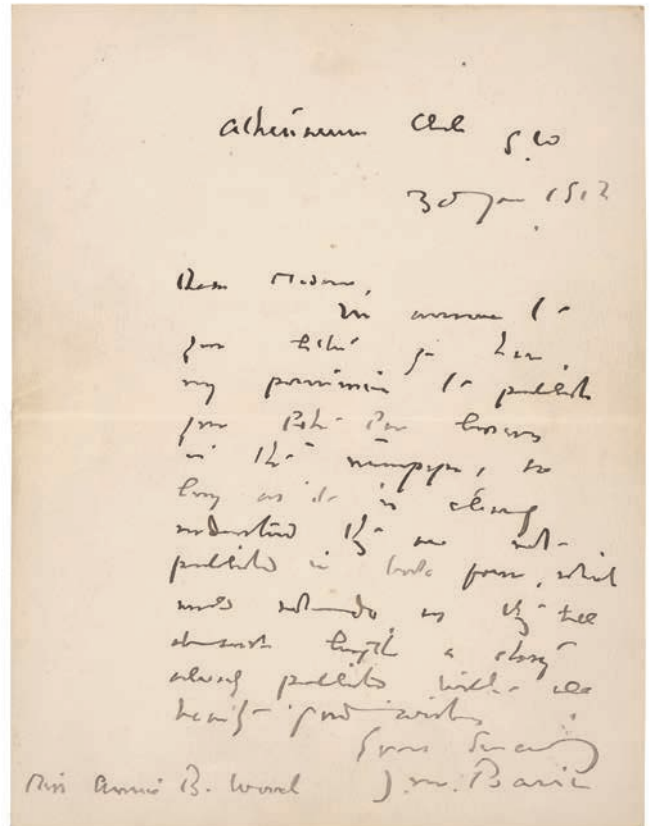 Athenaeum Club S.W
30 Jan 1912
Dear Madam,
In answer to
your letter you have
my permission to publish
your Peter Pan
in the newspaper, so
long as it is clearly
understood they are not
published in book form, which
would not do, as they tell
at such length a story
already published with all
good wishes.
Yours Sincerely
J. M. Barrie
Miss Annie B. Wood